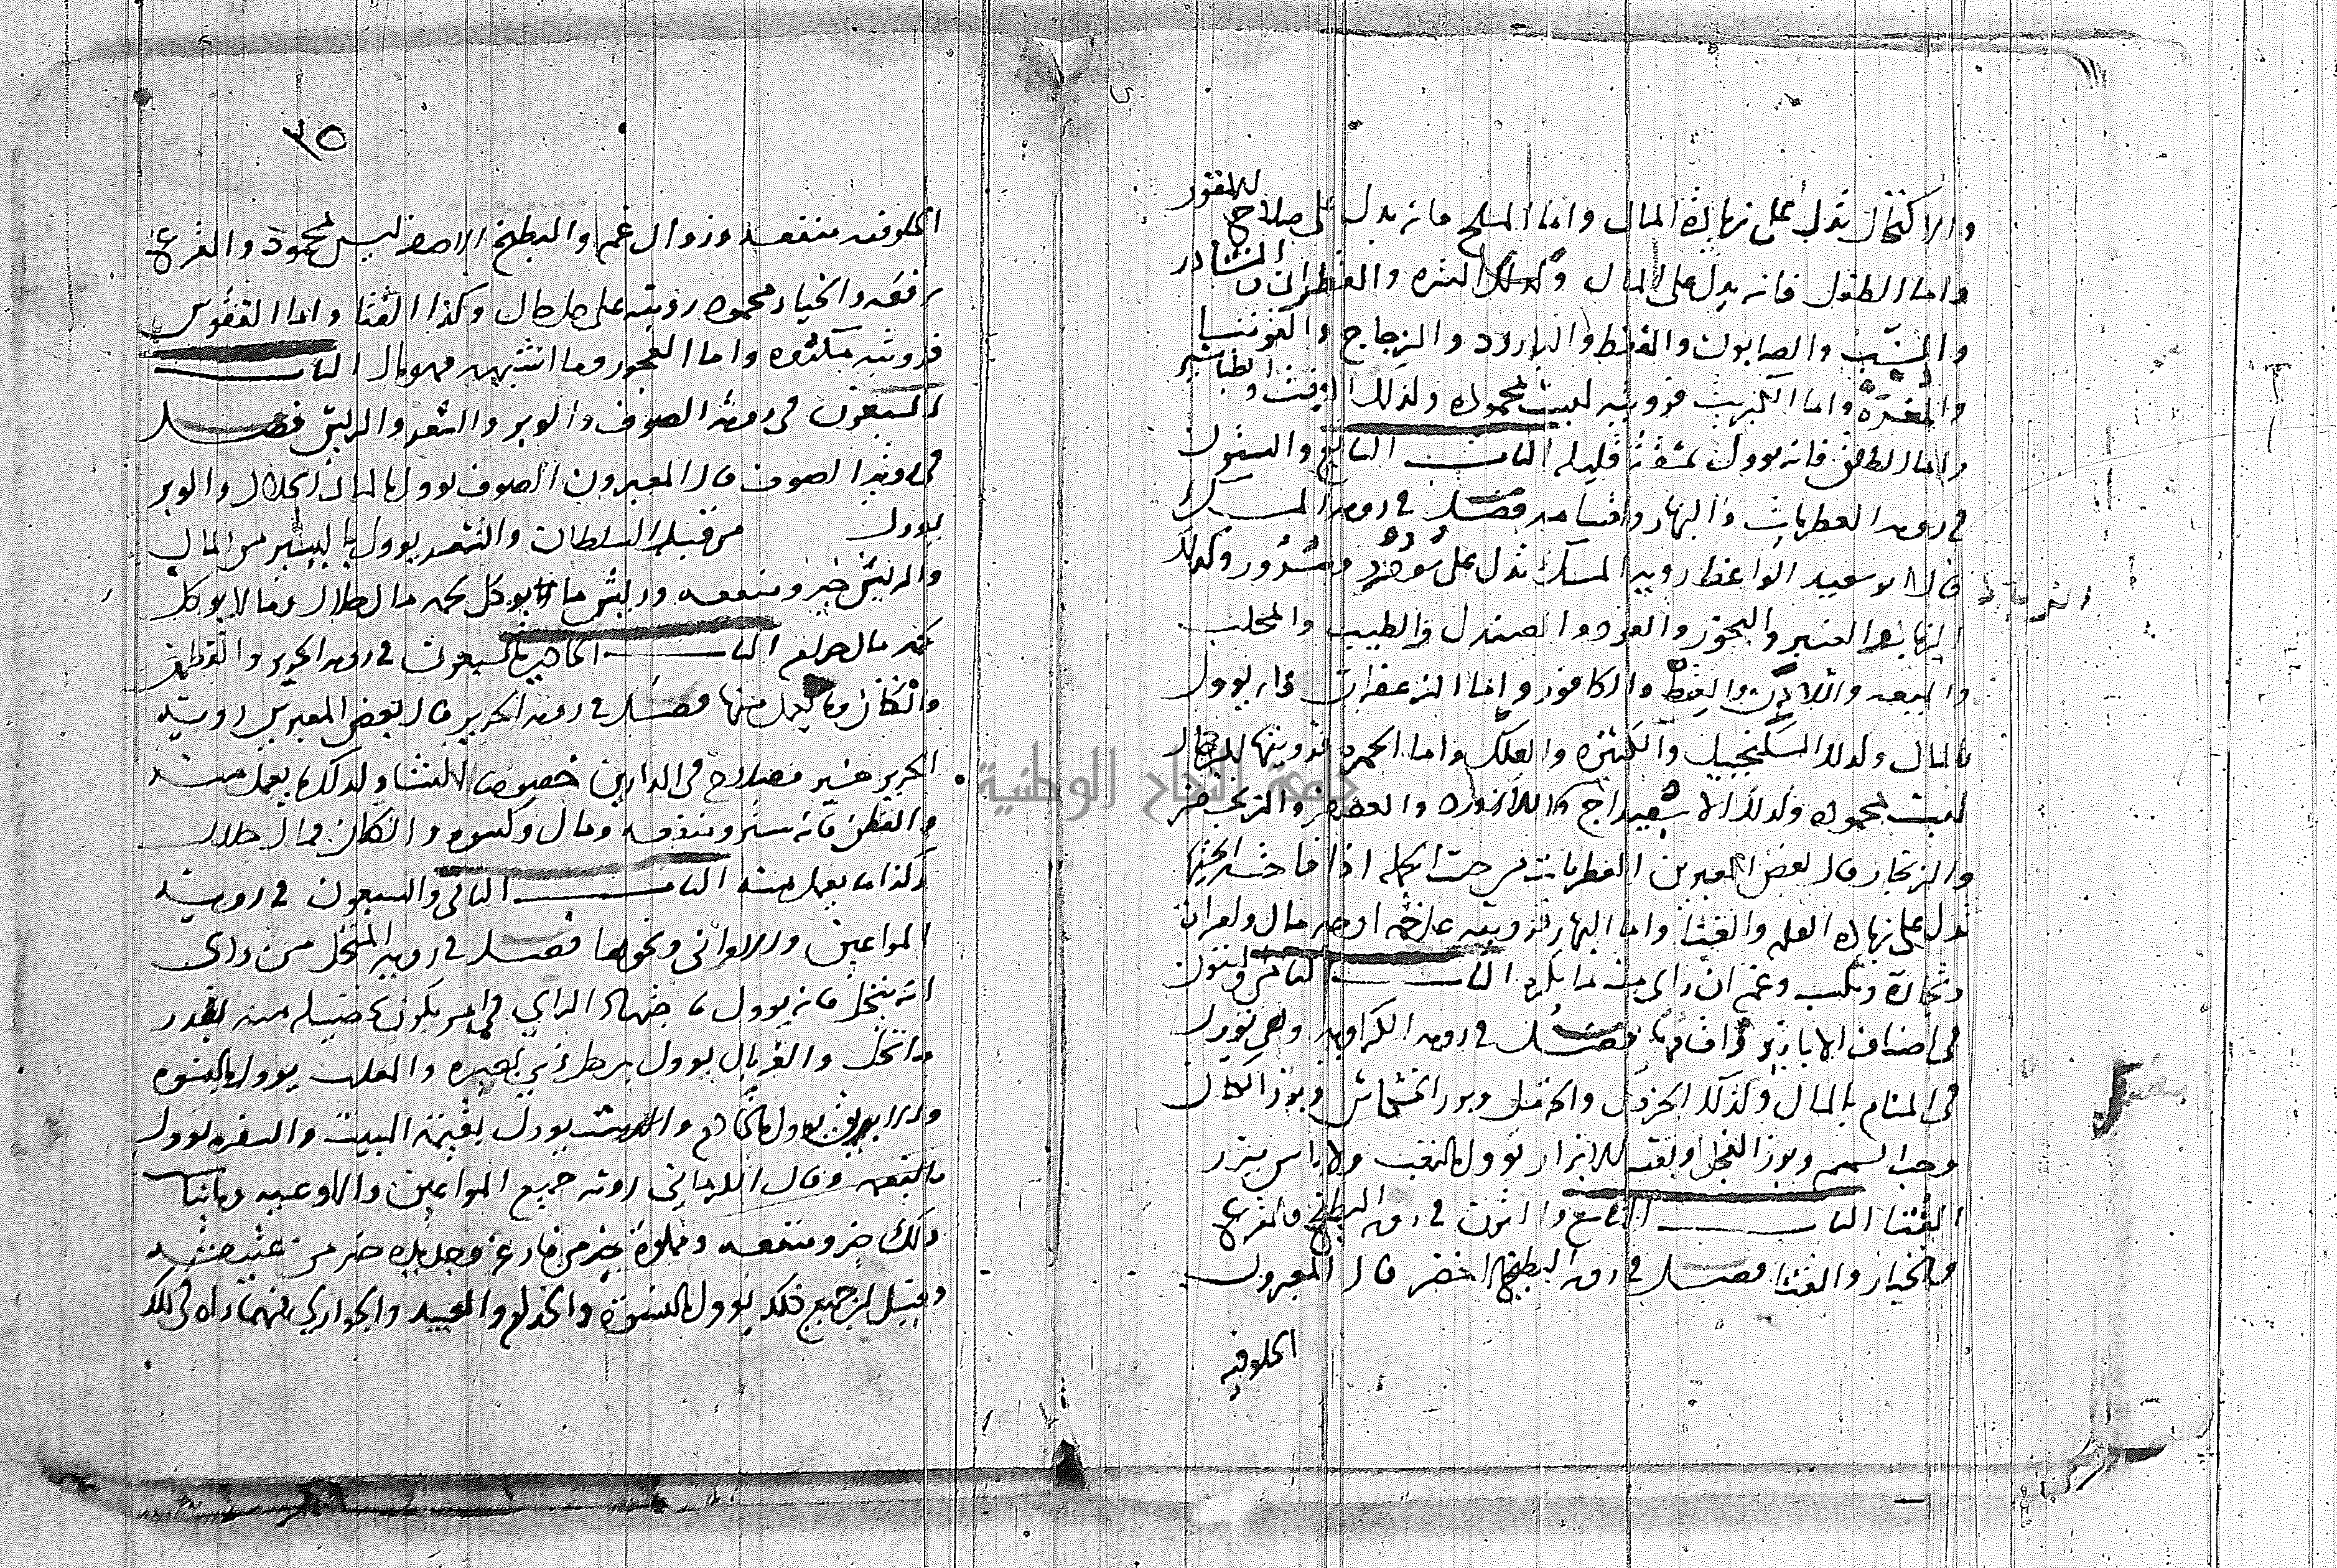 للامور
والاكتحال تدل على زيادة المال واما الملح فانه يدل على صلاح
واما الطفل فانه يدل على المال وكذلك النوره والقطران والنشادر
والشب والصابون والنفط والبارود والزجاج
والمغرة واما الكبريت فرويته ليست بمحموده وكذلك الزفت
واما الطلق فانه يوول بمشقة قليله الباب السابع والستون
في رويه العطريات والبهار واقسامه فصل في رويه المسك
قال ابو سعيد الواعظ رويه المسك تدل على سودد وسرور وكذلك
الزباد
والعنبر والبخور والعود والصندل والطيب والمحلب
والميعه واللادن والكافور واما الزعفران فانه يوول
بالمال وكذلك السكنجبيل والكثيره والعلك واما الحمره فرويتها للرجال
ليست بمحموده وكذلك الاسفيداج واللازورد والعصفر والزنجفر
والزنجار قال بعض المعبرين العطريات من حيث الجمله اذا فاحت رايحتها
تدل على زيادة العلم والثنا واما البهار فرويته على اوجه مال وامراة
وتجارة ومكسب وغم ان راى منه ما يكره الباب الثامن والستون
في اصناف الابازير فصل في رويه الكراويه وهي توول
في المنام بالمال وكذلك الخردل والحرمل وبزر الخشخاش وبزر الكتان
وحب السمسم وبزر الفجل وبقيه الابزار توول بالتعب ولا باس ببزر
القثا الباب التاسع والستون في رويه البطيخ والقرع
والخيار والقثا فصل في رويه البطيخ الاخضر قال المعبرون
الحلوفيه
٣٥
الحلوفيه منفعه وزوال غم والبطيخ الاصفر ليس بمحمود والقرع
رفعه والخيار محموده رويته على كل حال وكذا القثا واما الفقوس
فرويته مكثره واما العجور وما اشبهه فهو مال الباب
السبعون في رويه الصوف والوبر والشعر والريش فصل
في رويه الصوف قال المعبرون الصوف يوول بالمال الحلال والوبر
يوول من قبل السلطان والشعر يوول باليسير من المال
والريش خير ومنفعه وريش ما يوكل لحمه مال حلال وما لا يوكل
لحمه مال حرام الباب الحادي والسبعون في رويه الحرير والقطن
والكتان وما يعمل منها فصل في رويه الحرير قال بعض المعبرين رويه
الحرير خير وصلاح في الدارين خصوصا للنسا وكذلك ما يعمل منه
والقطن فانه ستر ومنفعه ومال وكسوه والكتان مال حلال
وكذا ما يعمل منه الباب الثاني والسبعون في رويه
المواعين والاواني ونحوها فصل في رويه المنخل من راى
انه ينخل فانه يوول باجتهاد الراي في امر يكون تحصيله منه بقدر
ما نخل والغربال يوول برجل ذي بصيره والمقلب يوول بالنسوه
والابريق يوول بالخادم والطست يوول بقيمة البيت والسفره توول
بالنعمه وقال الكرماني رويه جميع المواعين والاوعيه وما يناسب
ذلك خير ومنفعه ومملوة خير من فارغ وجديده خير من عتيقه
وقيل ان جميع ذلك يوول بالنسوة والخدام والعبيد والجواري فمهما راه في ذلك
جامعة النجاح الوطنية